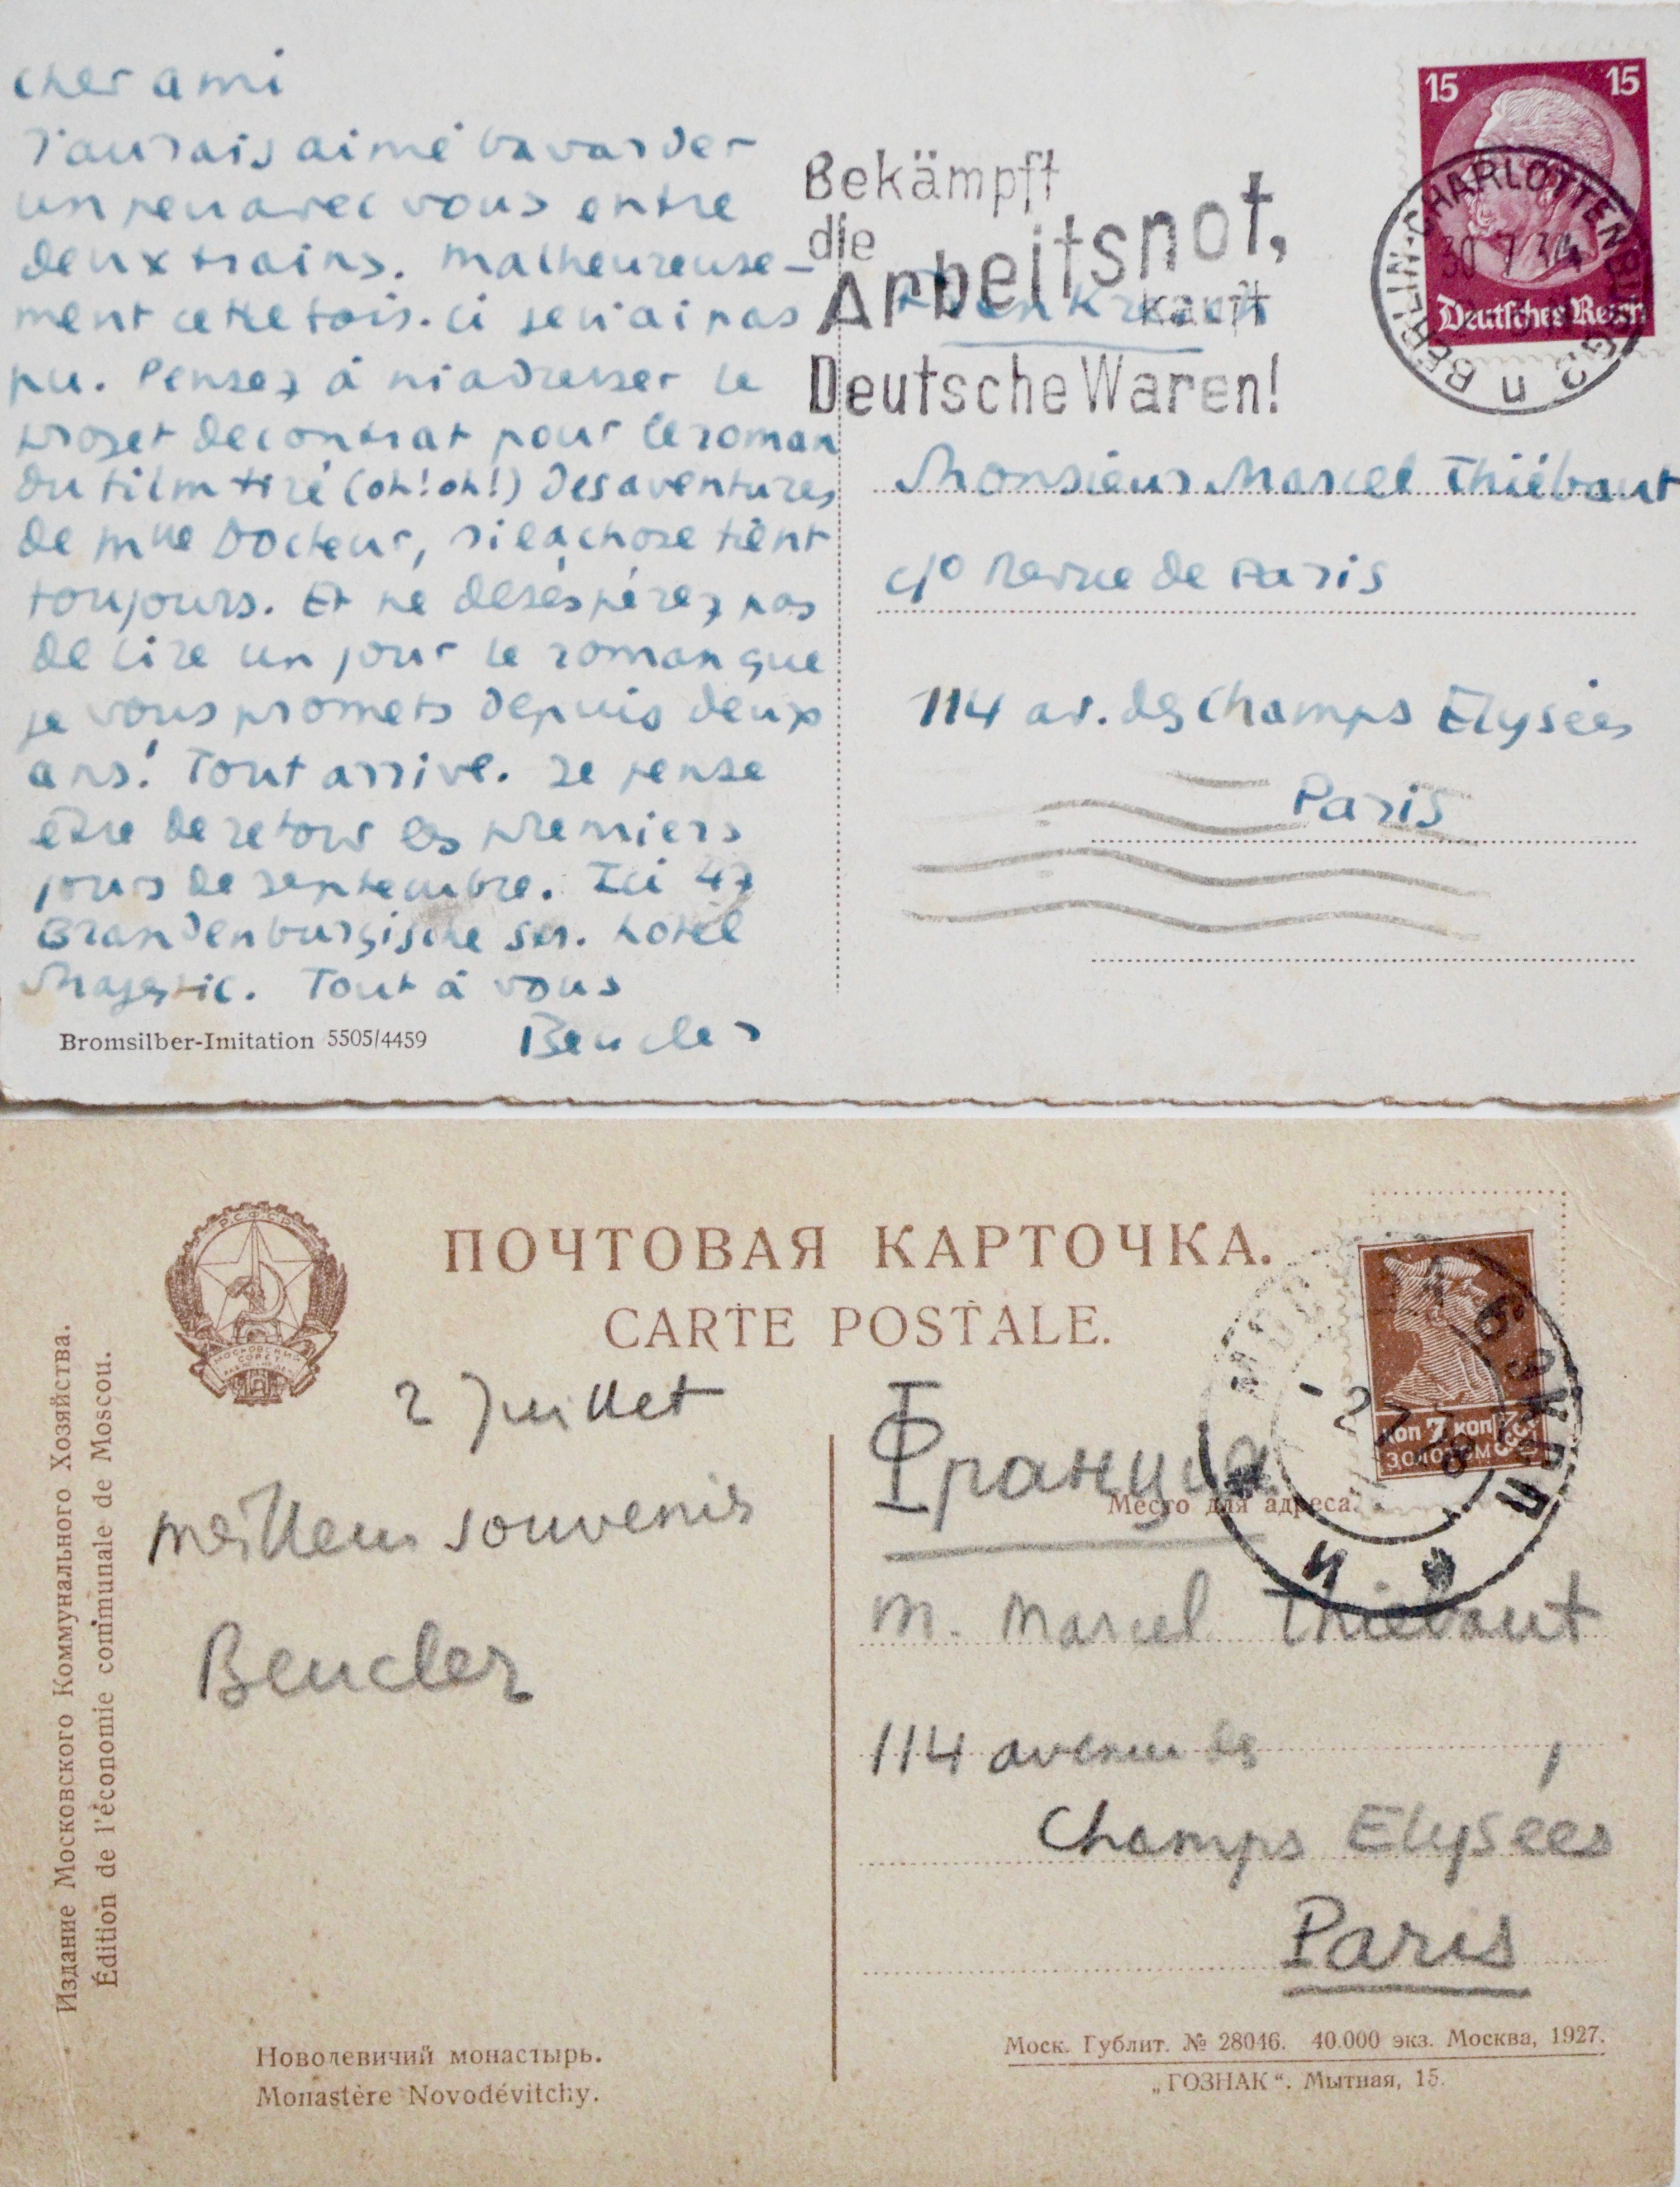 cher ami
J'aurais aimé bavarder
un peu avec vous entre
deux trains. Malheureuse-
ment cette fois-ci je n'ai pas
pu. Pensez à m'adresser le
projet de contrat pour le roman
du film tiré (oh! oh!) des aventures
de Mlle Docteur, si la chose tient
toujours. Et ne désespérez pas
de lire un jour le roman que
je vous promets depuis deux
ans! Tout arrive. Je pense
être de retour les premiers
jours de septembre. Ici 47
Brandenburgische str. hotel
Majestic. Tout à vous
Beucler
Bromsilber-Imitation 5505/4459
Bekämpft
die
Arbeitsnot,
kauft
Deutsche Waren!
15 15
Deutsches Reich
BERLIN-CHARLOTTENBURG 2
30 7 34
u
Frankreich
Monsieur Marcel Thiébaut
c/o Revue de Paris
114 av. des Champs Elysées
Paris
РСФСР
МОСКОВСКИЙ
СОВЕТ
ПОЧТОВАЯ КАРТОЧКА.
CARTE POSTALE.
Издание Московского Коммунального Хозяйства.
Édition de l'économie communale de Moscou.
2 Juillet
meilleurs souvenirs
Beucler
КОП 7 КОП
ЗОЛОТОМ
СССР
МОСКВА
2 7 28
Франция
Место для адреса.
M. Marcel Thiébaut
114 avenue des
Champs Elysées
Paris
Новодевичий монастырь.
Monastère Novodévitchy.
Моск. Гублит. № 28046. 40.000 экз. Москва, 1927.
„ГОЗНАК“. Мытная, 15.